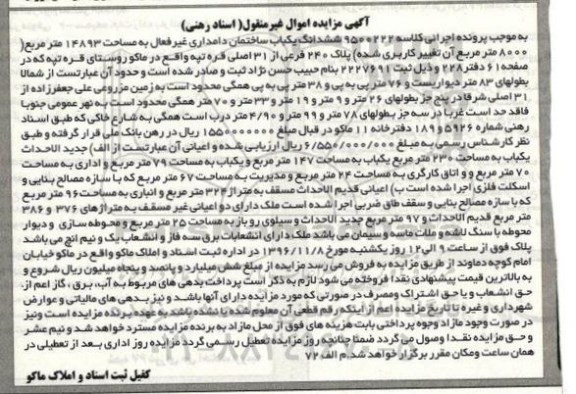 آگهی مزایده اموال غیرمنقول( اسناد رهنی)
به موجب پرونده اجرائی کلاسه ۹۵۰۰۲۲۲ ششدانگ یکباب ساختمان دامداری غیر فعال به مساحت ۱۴۸۹۳ متر مربع(
۸۰۰۰ متر مربع آن تغییر کاربری شده) پلاک ۲۴۰ فرعی از ۳۱ اصلی قره تپه واقع در ماکو روستای قره تپه که در
صفحه۶۱ دفتر ۲۲۸ و ذیل ثبت ۲۲۲۷۶۹۱ بنام حبیب حسن نژاد ثبت و صادر شده است و حدود آن عبارتست از شمالا
بطولهای ۸۳ متر دیواریست و ۷۶ متر پی به پی و ۳۸ متر پی به پی همگی محدود است به زمین مزروعی علی جعفرزاده از
۳۱ اصلی شرقا در پنج جز بطولهای ۲۶ متر و ۹ متر و ۱۹ متر و ۳۳ متر و ۷۰ متر همگی محدود است به نهر عمومی جنوبا
فاقد حد است غربا در سه جز بطولهای ۷۸ متر و ۹۹ متر و ۴/۹۰ متر درب است همگی به شارع خاکی که طبق اسناد
رهنی شماره ۵۹۲۶ و۱۸۹ دفترخانه ۱۱ ماکو در قبال مبلغ ۱۵۵۰۰۰۰۰۰۰ ریال در رهن بانک ملی قرار گرفته و طبق
نظر کارشناس رسمی به مبلغ ۶/۵۵۰/۰۰۰/۰۰۰ ریال ارزیابی شده و اعیانی آن عبارتست از الف) جدید الاحداث
یکباب به مساحت ۲۳۰ متر مربع یکباب به مساحت ۱۴۷ متر مربع و یکباب به مساحت ۷۹ متر مربع و اداری به مساحت
۷۰ متر مربع و و اتاق کارگری به مساحت ۲۴ متر مربع و مدیریت به مساحت ۶۷ متر مربع که با سازه مصالح بنایی و
اسکلت فلزی اجرا شده است ب) اعیانی قدیم الاحداث مسقف به متراژ ۳۲۴ متر مربع و انباری به مساحت ۹۶ متر مربع
که با سازه مصالح بنایی و سقف طاق ضربی اجرا شده است ملک دارای دو اعیانی غیر مسقف به متراژهای ۳۷۶ و ۳۸۶
متر مربع قدیم الاحداث و ۹۷ متر مربع جدید الاحداث و سیلوی رو باز به مساحت ۲۵ متر مربع و محوطه سازی و دیوار
محوطه با سنگ لاشه و ملات ماسه و سیمان می باشد ملک دارای انشعابات برق سه فاز و انشعاب یک و نیم انچ می باشد
پلاک فوق از ساعت ۹ الی۱۲ روز یکشنبه مورخ ۱۳۹۶/۱۱/۸ در اداره ثبت اسناد و املاک ماکو واقع در ماکو خیابان
امام کوچه دماوند از طریق مزایده به فروش می رسد مزایده از مبلغ شش میلیارد و پانصد و پنجاه میلیون ریال شروع و
به بالاترین قیمت پیشنهادی نقدا فروخته می شود لازم به ذکر است پرداخت بدهی های مربوط به آب، برق ، گاز اعم از،
حق انشعاب و یا حق اشتراک ومصرف در صورتی که مورد مزایده دارای آنها باشد و نیز بدهی های مالیاتی و عوارض
شهرداری و غیره تا تاریخ مزایده اعم از اینکه رقم قطعی آن معلوم شده یا نشده باشد به عهده برنده مزایده است ونیز
در صورت وجود مازاد وجوه پرداختی بابت هزینه های فوق از محل مازاد به برنده مزایده مسترد خواهد شد و نیم عشر
و حق مزایده نقدا وصول می گردد ضمنا چنانچه روز مزایده تعطیل رسمی گردد مزایده روز اداری بعد از تعطیلی در
همان ساعت ومکان مقرر برگزار خواهد شد.م الف ۷۲
کفیل ثبت اسناد و املاک ماکو